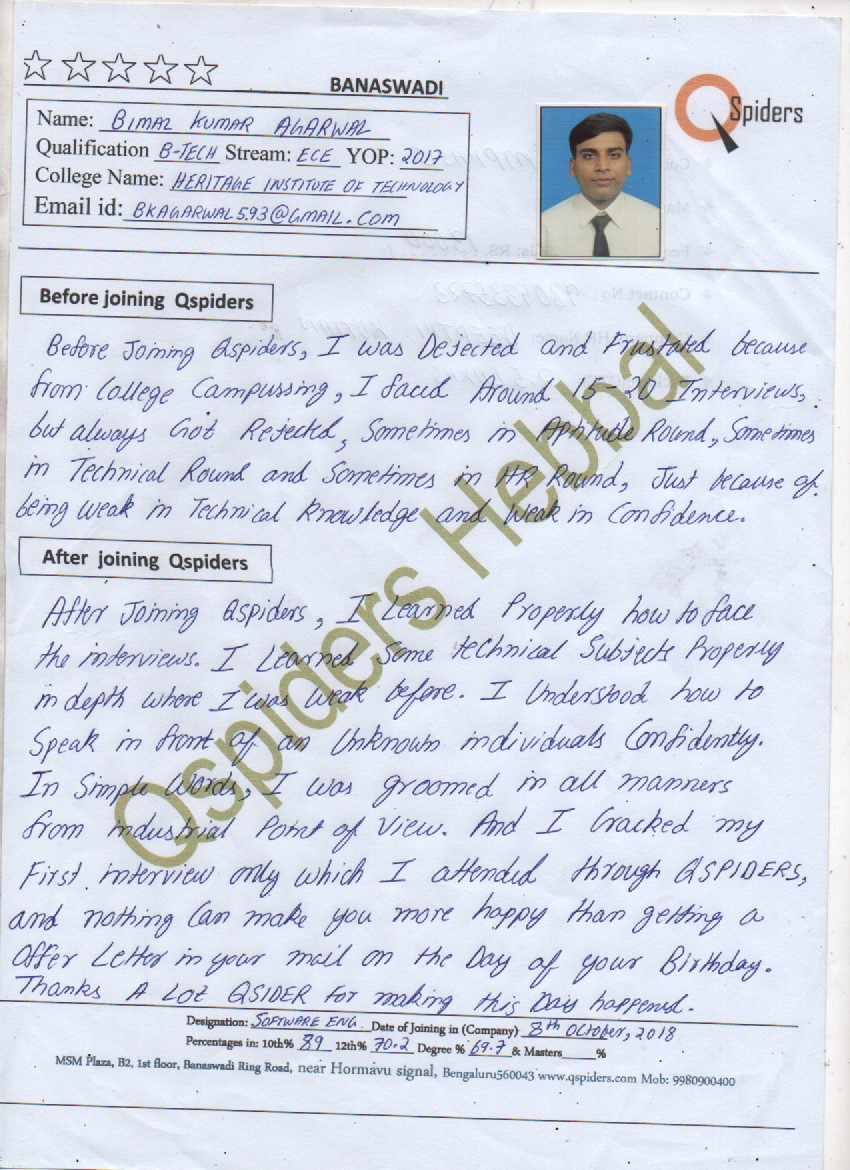 BANASWADI
Q Spiders
Name: BIMAL KUMAR AGARWAL
Qualification B-TECH Stream: ECE YOP: 2017
College Name: HERITAGE INSTITUTE OF TECHNOLOGY
Email id: BKAGARWAL593@GMAIL.COM
Before joining Qspiders
Before Joining Qspiders, I was Dejected and Frustated because
from College Campussing, I faced Around 15-20 Interviews,
but always Got Rejected, Sometimes in Aptitude Round, Sometimes
in Technical Round and Sometimes in HR Round, Just because of
being weak in Technical Knowledge and Weak in Confidence.
After joining Qspiders
After Joining Qspiders, I Learned Properly how to face
the interviews. I Learned Some technical Subjects Properly
in depth where I was weak before. I Understood how to
Speak in front of an Unknown individuals Confidently.
In Simple Words, I was groomed in all manners
from industrial Point of View. And I Cracked my
First interview only which I attended through QSPIDERS,
and nothing Can make you more happy than getting a
Offer Letter in your mail on the Day of your Birthday.
Thanks A Lot QSIDER for making this Day happened.
Designation: SOFTWARE ENG. Date of Joining in (Company) 8th October, 2018
Percentages in: 10th% 89 12th% 70.2 Degree % 69.7 & Masters %
MSM Plaza, B2, 1st floor, Banaswadi Ring Road, near Hormavu signal, Bengaluru560043 www.qspiders.com Mob: 9980900400
Qspiders Hebbal